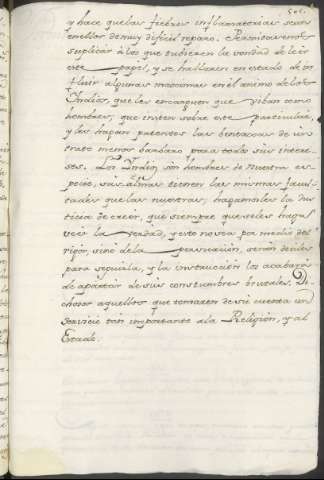 y hace que las fiebres inflamatorias sean
en ellos de muy dificil reparo. Permitaseme
suplicár á los que tubieren la bondad de leér
este papel, y se hallaren en estado de in
fluir algunas maximas en el animo de los
Indios, que les encarguen que vivan como
hombres, que insten sobre este particular,
y les hagan patentes las bentajas de un
trato menos barbaro para todos sus intere-
ses. Los Indios son hombres de nuestra es-
pecie, sus almas tienen las mismas facul-
tades que las nuestras; hagamosles la jus
ticia de creer, que siempre que se les haga
veér la verdad, y esto no sea por medio del
rigór, sino de la persuacion, serán dociles
para seguirla, y la instruccion los acabará
de apartár de sus constumbres brutales. Di-
chosos aquellos que tomaren de su cuenta un
servicio tan importante á la Religion, y al
Estado.